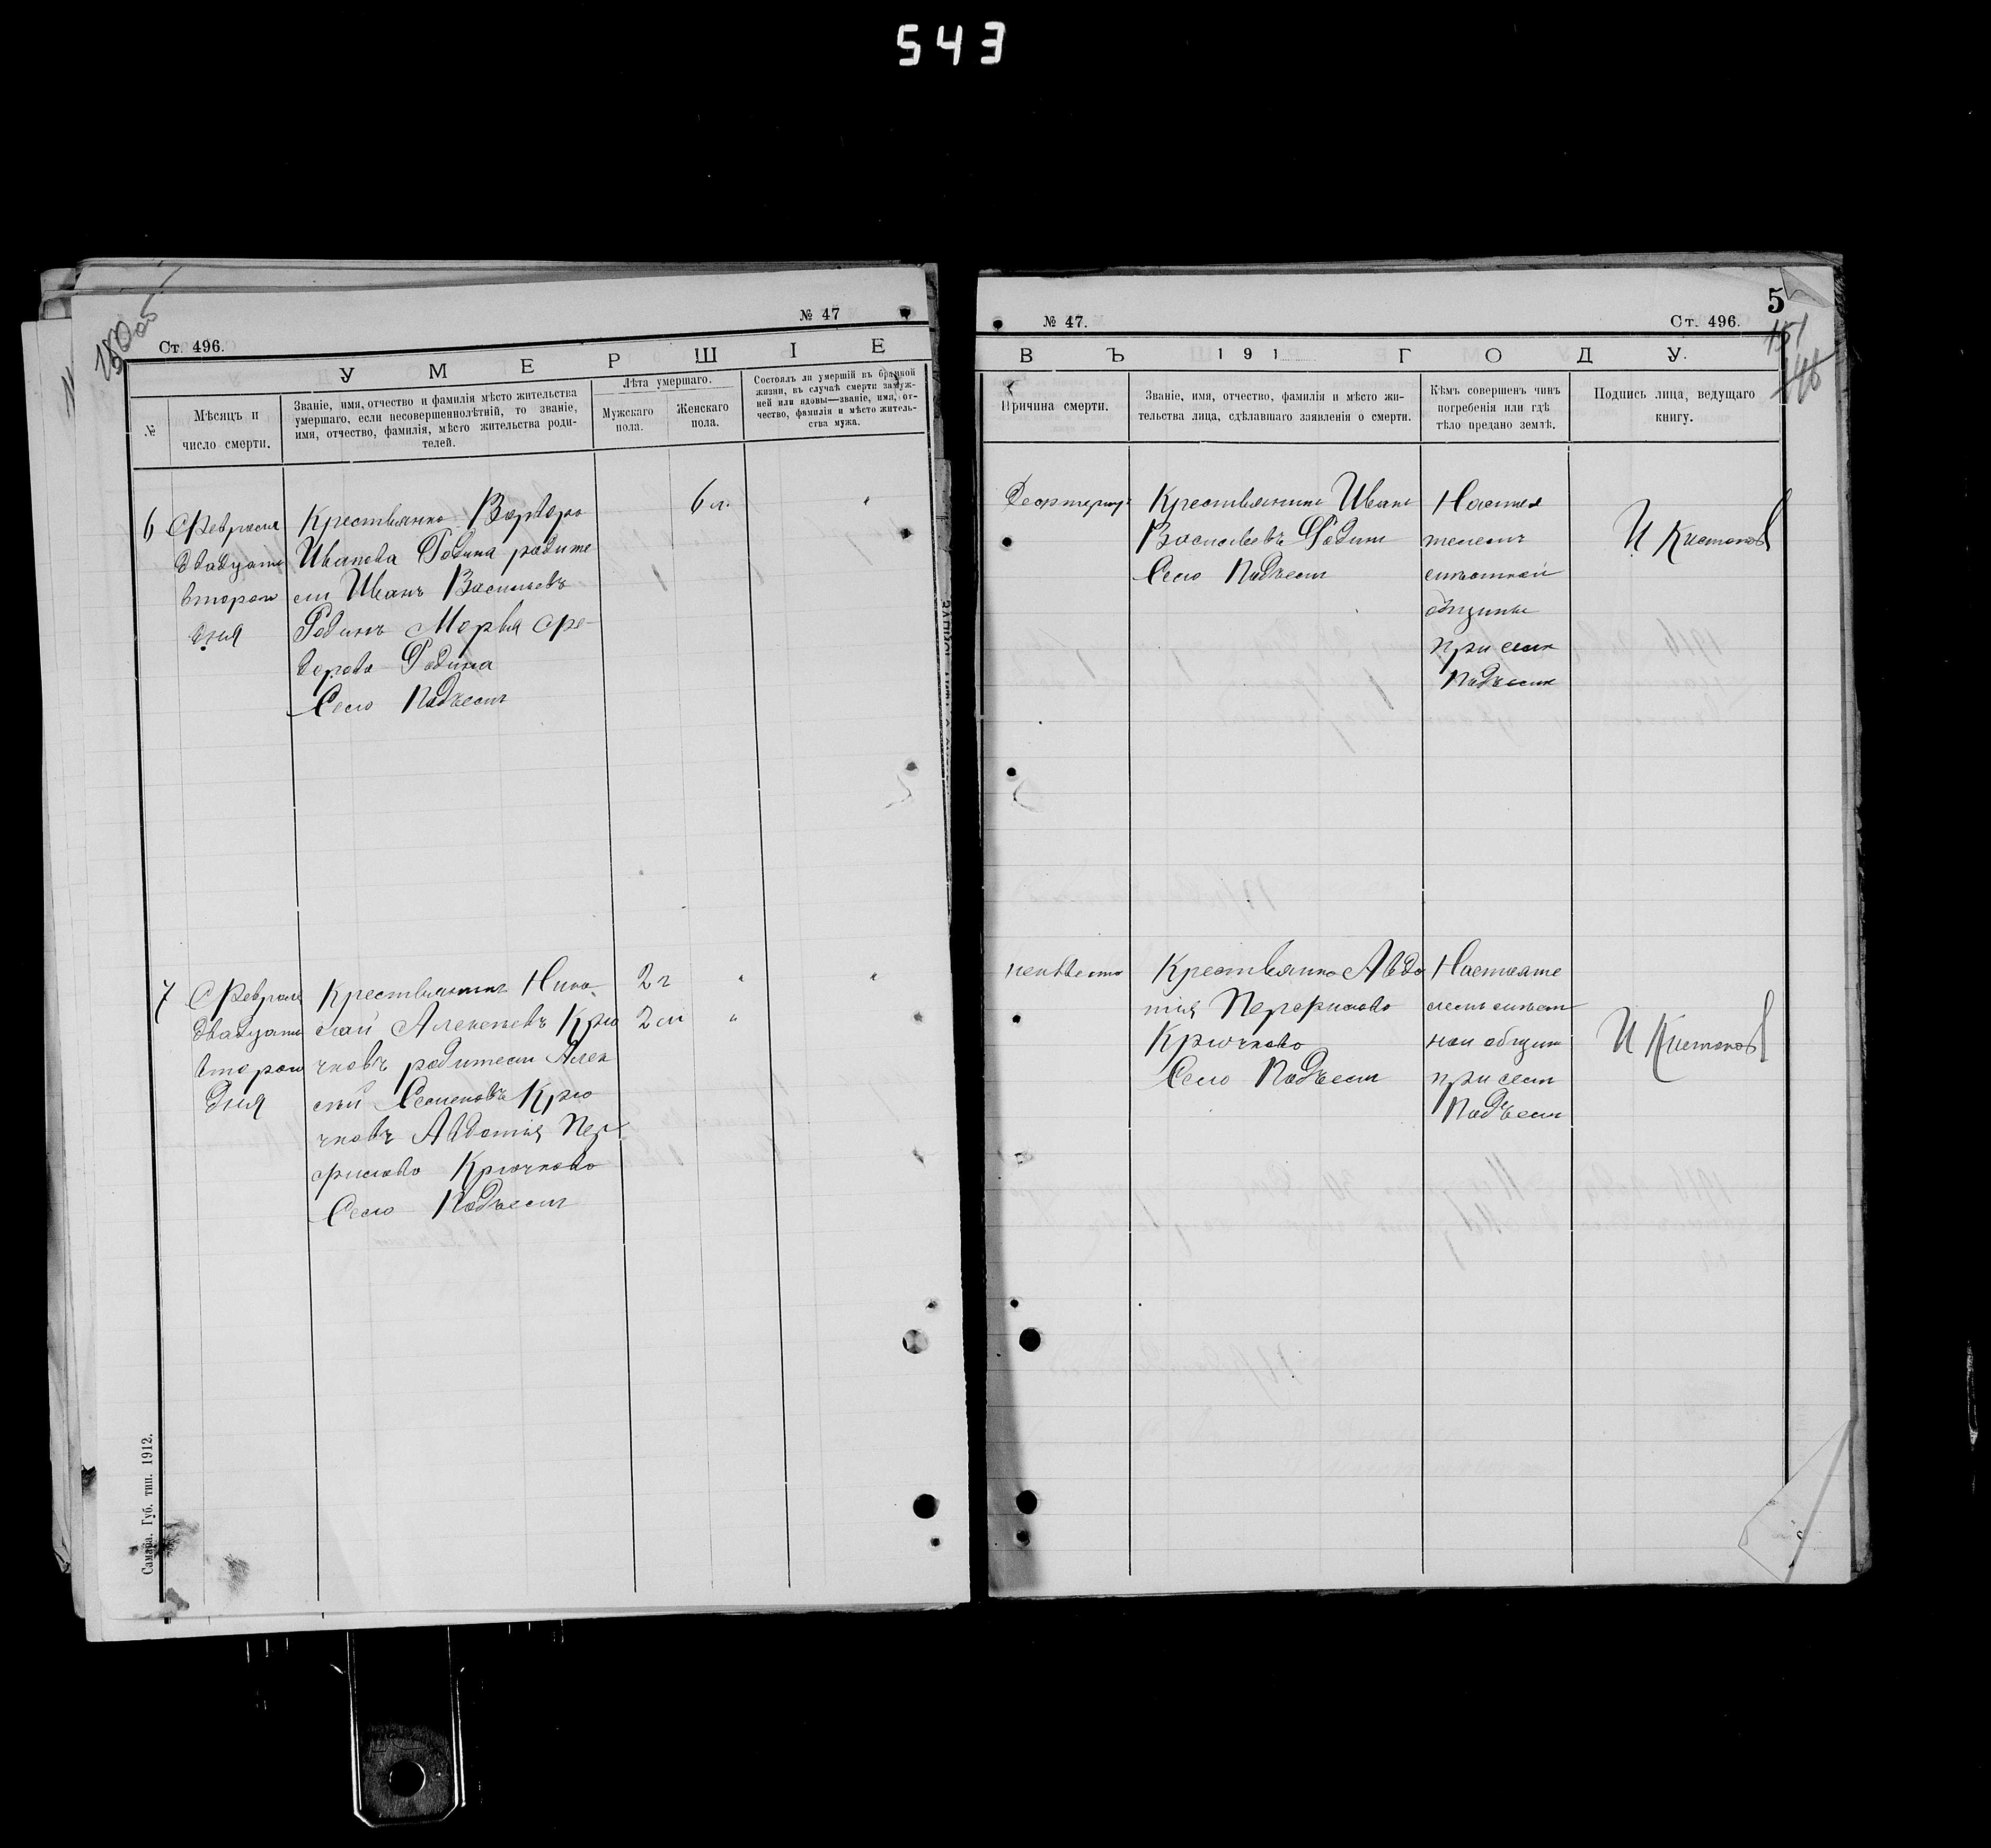 543
№ 47
Ст. 496.
У М Е Р Ш І Е
№
Мѣсяцъ и
число смерти.
Званіе, имя, отчество и фамилія мѣсто жительства
умершаго, если несовершеннолѣтній, то званіе,
имя, отчество, фамилія, мѣсто жительства роди-
телей.
Лѣта умершаго.
Мужскаго
пола.
Женскаго
пола.
Состоялъ ли умершій въ брачной
жизни, въ случаѣ смерти замуж-
ней или вдовы—званіе, имя, от-
чество, фамилія и мѣсто житель-
ства мужа.
6
Февраля
двадцать
второго
дня
Крестьянка Варвара
Иванова Родина родите
ли Иванъ Васильевъ
Родинъ Марѳа Фе-
дорова Родина
Село Подъемъ
6 м.
7
Февраля
двадцать
второго
дня
Крестьянинъ Нико
лай Алексѣевъ Крю
чковъ родители Алек
сѣй Семеновъ Крю
чковъ Авдотия Пер
филова Крючкова
Село Подъемъ
2 г
2 м
Самара. Губ. тип. 1912.
5
№ 47.
Ст. 496.
151
146
В Ъ 1 9 1 Г О Д У.
Причина смерти.
Званіе, имя, отчество, фамилія и мѣсто жи-
тельства лица, сдѣлавшаго заявленія о смерти.
Кѣмъ совершенъ чинъ
погребенія или гдѣ
тѣло предано землѣ.
Подпись лица, ведущаго
книгу.
Крестьянинъ Иванъ
Васильевъ Родинъ
Село Подъемъ
Настоя
телемъ
общины
при селѣ
Подъемъ
И Кистанов
неизвестно
Крестьянка Авдо
тия Перфилова
Крючкова
Село Подъемъ
Настояте
ной общин
при селѣ
Подъемъ
И Кистанов